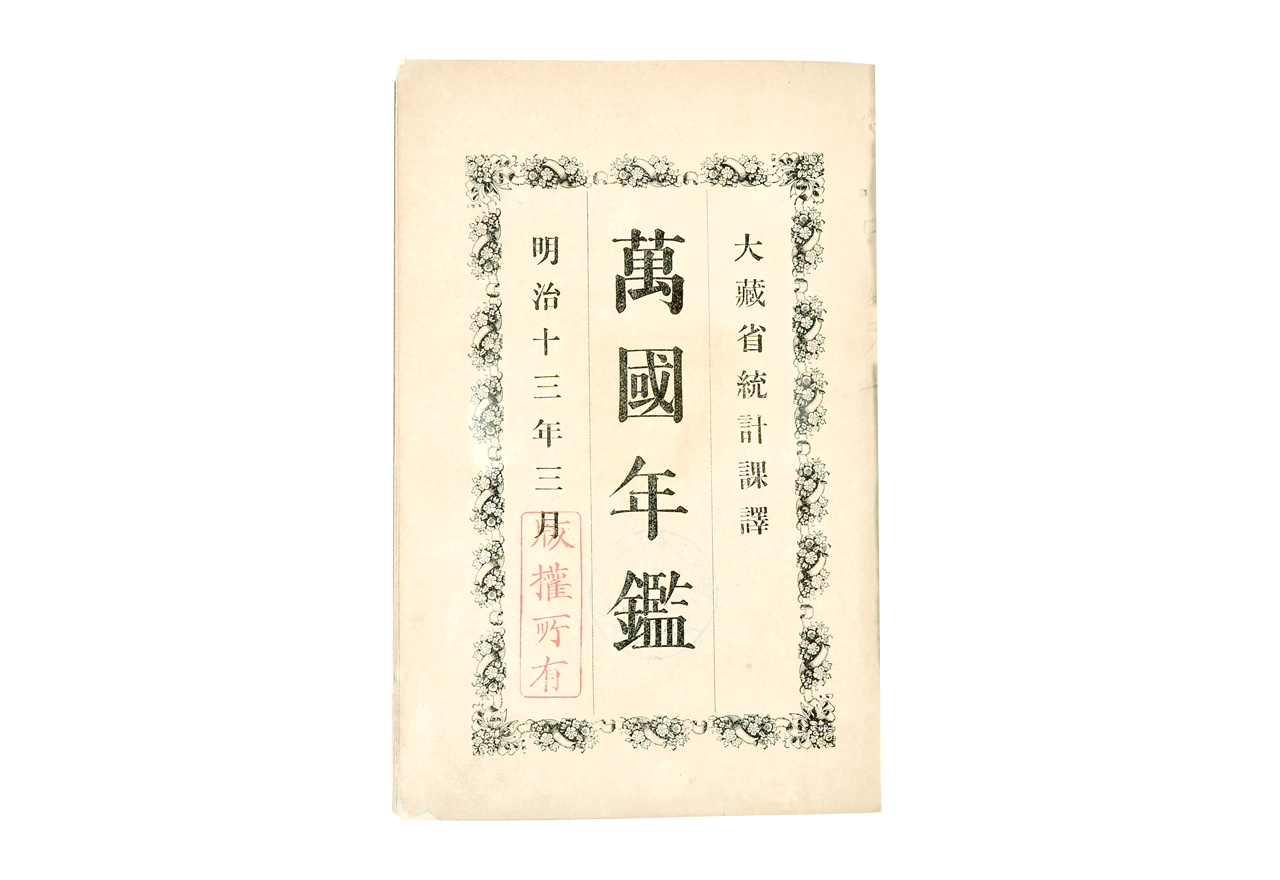 大藏省統計課譯
萬國年鑑
明治十三年三月
版權所有